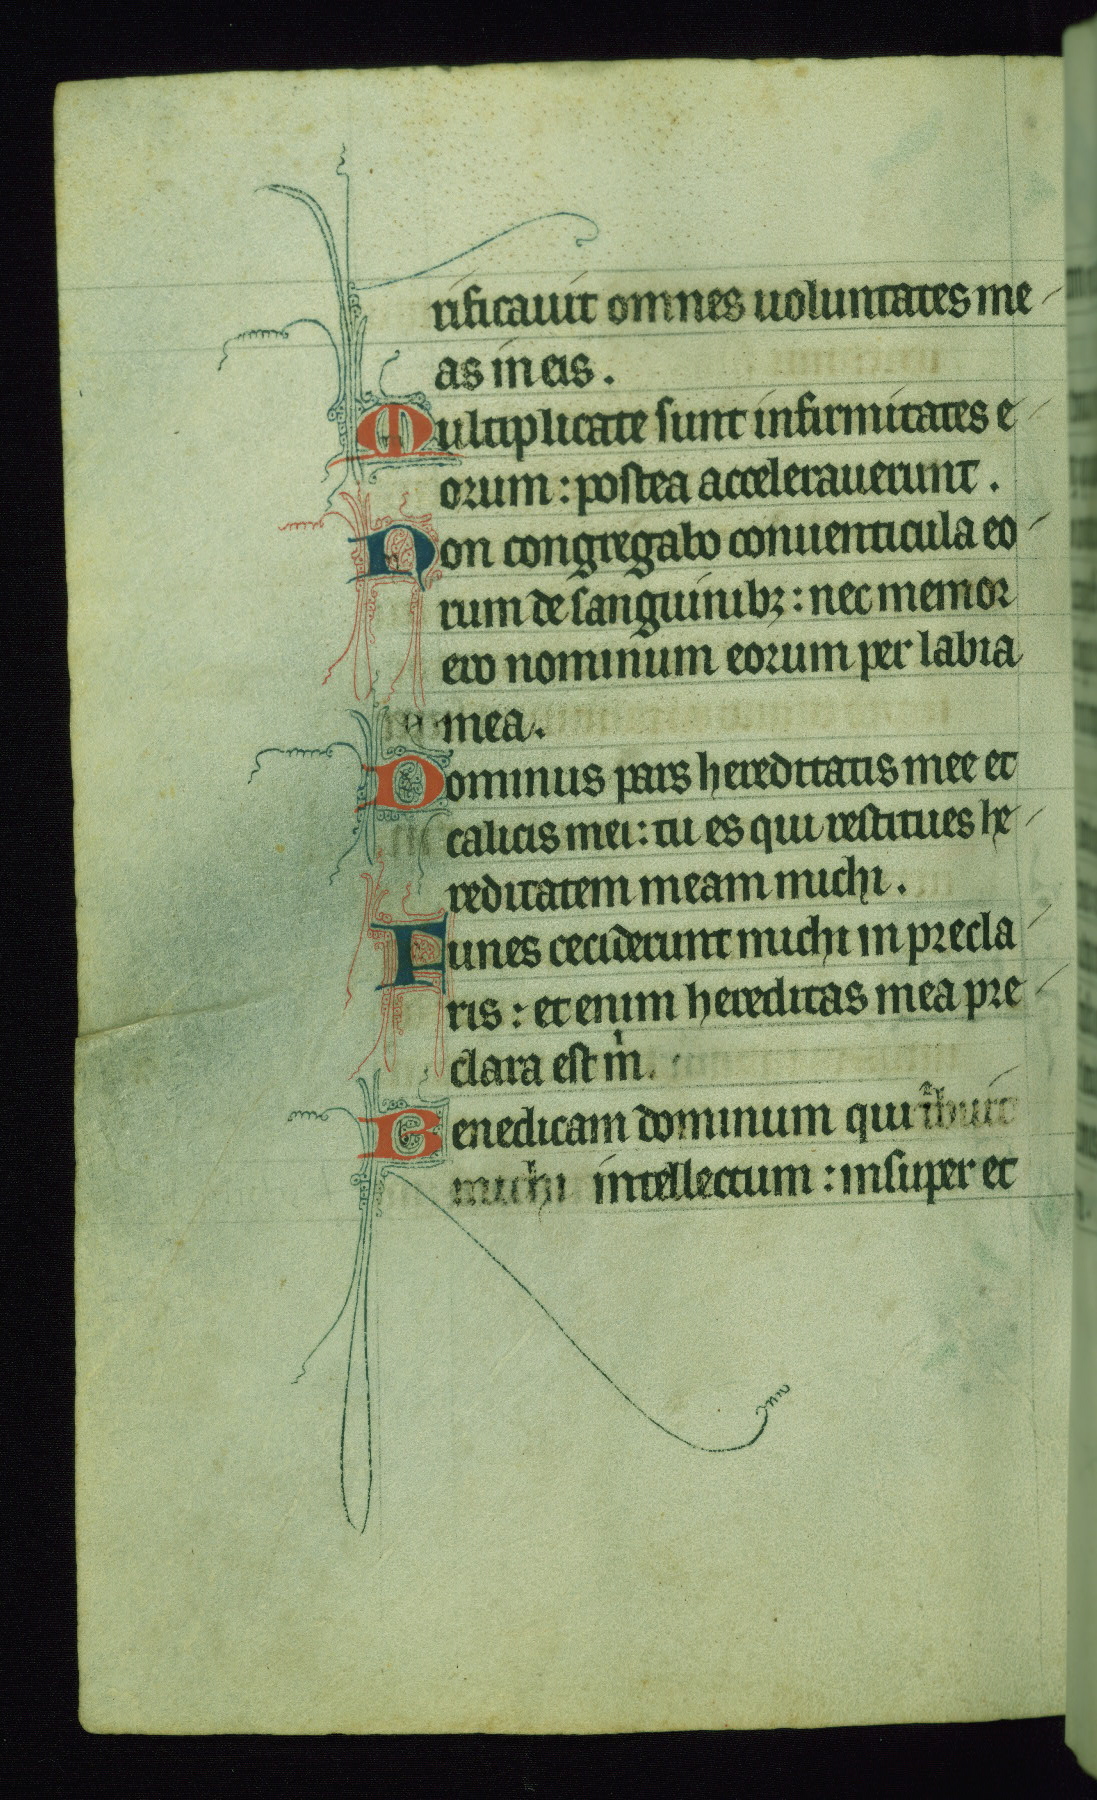 rificauit omnes uoluntates me
as in eis.
Multiplicate sunt infirmitates e
orum: postea accelerauerunt.
Non congregabo conuenticula eo
rum de sanguinibꝫ: nec memor
ero nominum eorum per labia
mea.
Dominus pars hereditatis mee et
calicis mei: tu es qui restitues he
reditatem meam michi.
Funes ceciderunt michi in precla
ris: et enim hereditas mea pre
clara est mͥ.
Benedicam dominum qui
michi intellectum: insuper et